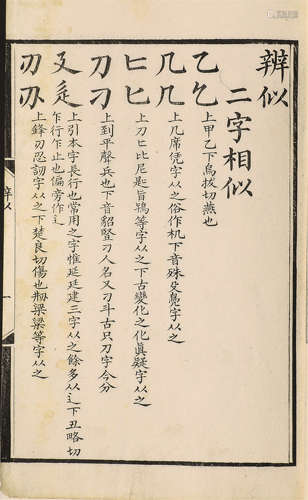 辨似
二字相似
乙乞 上甲乙下烏拔切燕也
几𠘧 上几席凭字从之俗作机下音殊殳鳧字从之
匕𠤎 上刀匕比尼匙旨鴇等字从之下古變化之化眞疑字从之
刀刁 上到平聲兵也下音貂豎刁人名又刁斗古只刀字今分
廴辵 上引本字長行也常用之字惟延廷建三字从之餘多从辶下丑略切乍行乍止也偏旁作辶
刃刅 上鋒刃忍訒字从之下楚良切傷也剏梁粱等字从之
辨似
一